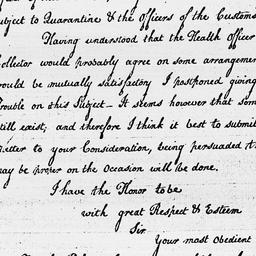 ubject to Quarantine & the Officers of the Customs
Having understood that the Health Officer
ollector would probably agree on some arrangeme
would be mutually satisfactory I postponed giving
rouble on this Subject — It seems however that som
till exist, and therefore I think it best to submit
atter to your Consideration, being persuaded th
may be proper on the Occasion will be done.
I have the Honor to be
with great Respect & Esteem
Sir
Your most Obedient